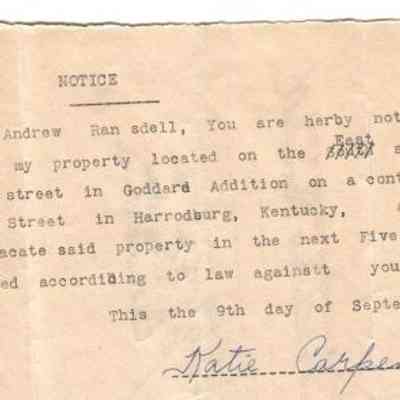 NOTICE
Andrew Ransdell, You are herby not
East
my property located on the
street in Goddard Addition on a cont
Street in Harrodsburg, Kentucky,
acate said property in the next Five
ed according to law againstt you
This the 9th day of Septe
Katie Carpen